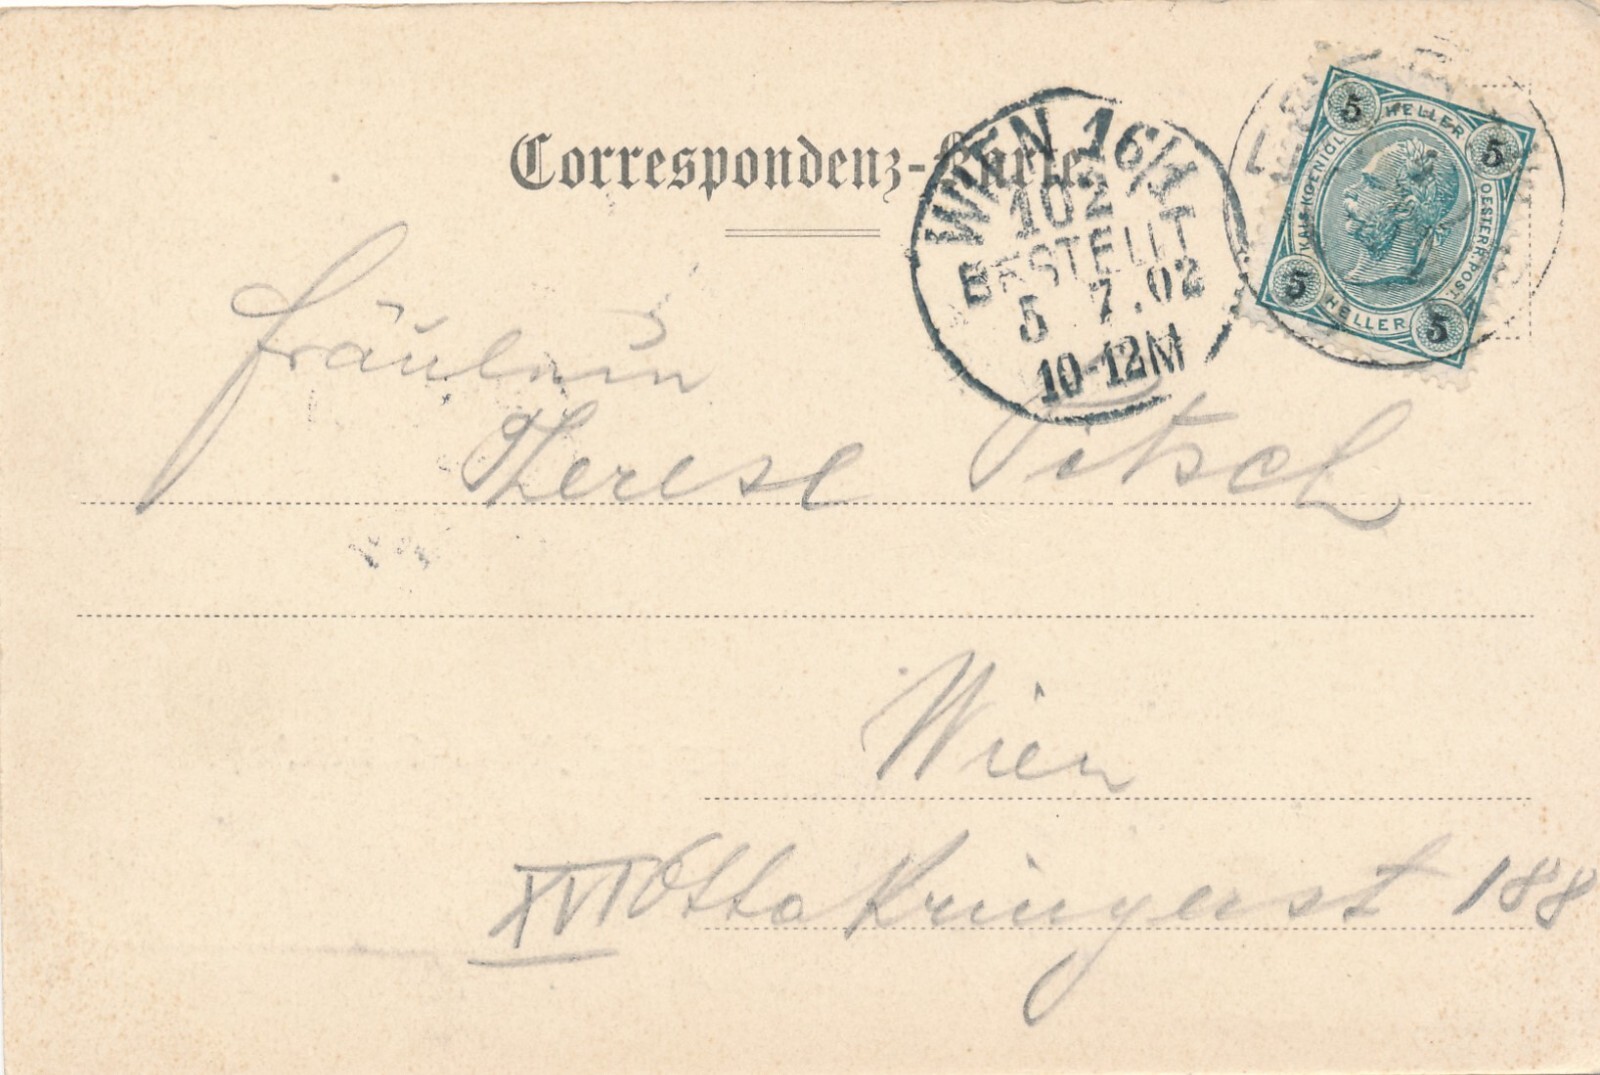 Correspondenz-Karte.
WIEN 16/1
102
BESTELLT
5 7.02
10-12M
5 HELLER 5
KAIS. KOENIGL.
OESTERR. POST
5 HELLER 5
Fräulein
Therese Pitsch
Wien
XVI Ottakringerst 188